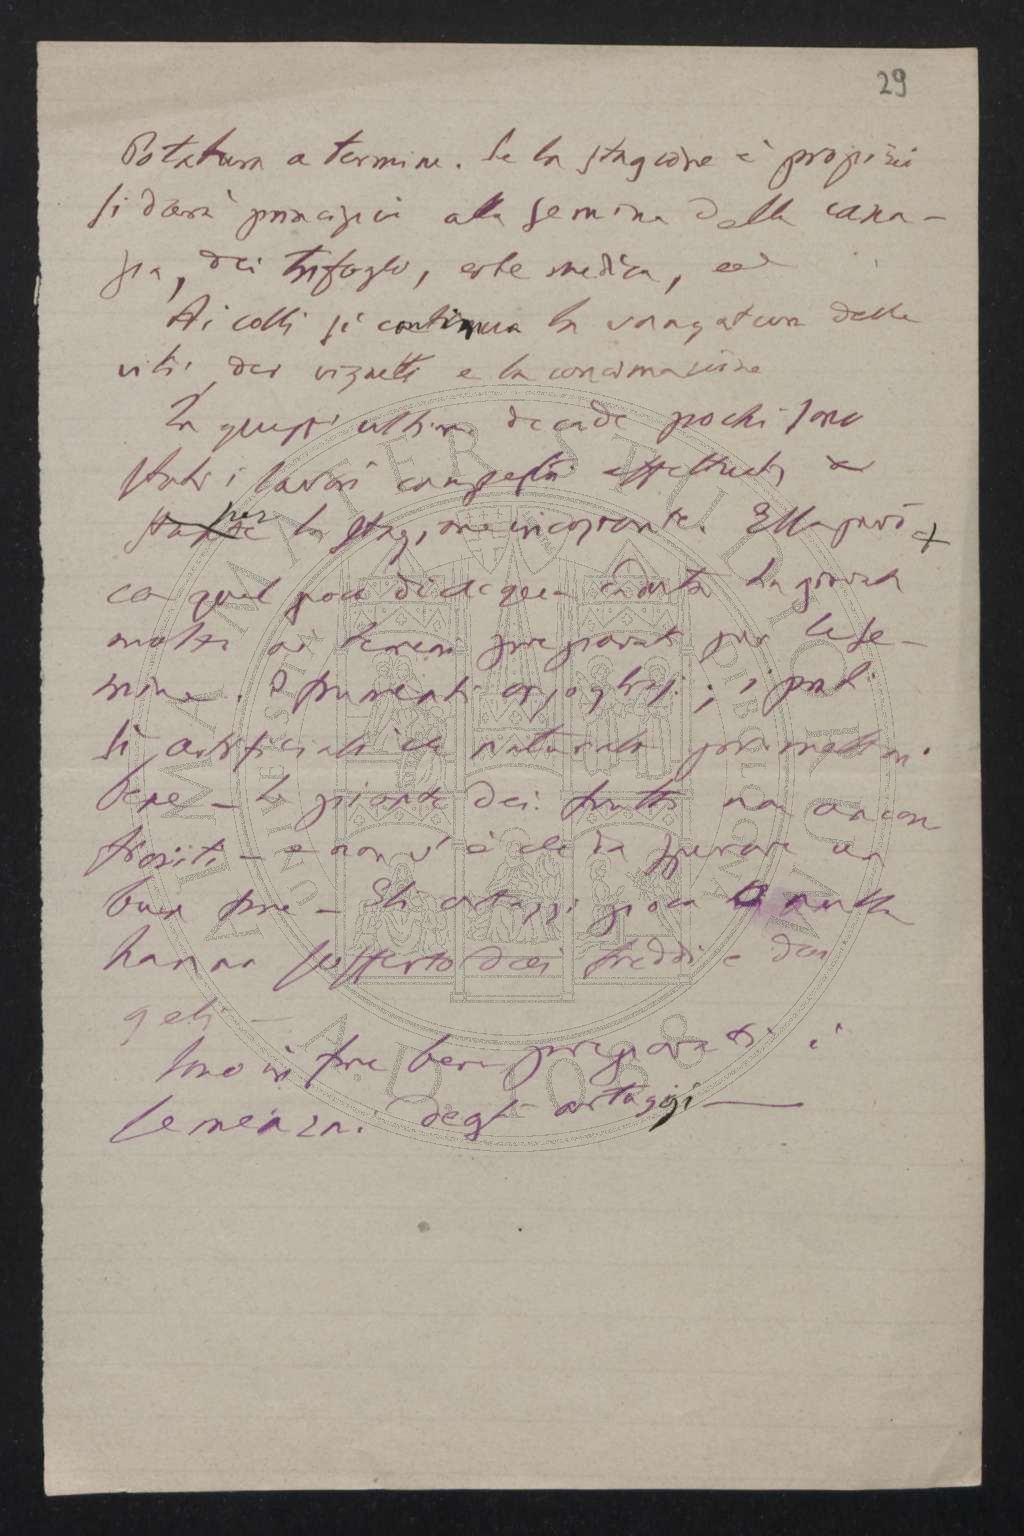 29
Potatura a termine. Se la stagione è propizia
si darà principio alla semina della cana-
pa, dei trifogli, erbe medica, ed
Ai colli si continua la vangatura delle
viti, dei vigneti e la concimazione
In quest'ultima decade pochi sono
stati i lavori campestri effettuati
per la stagione incostante. Ella però +
con quel poco di acqua caduta ha giovato
molto ai terreni preparati per le se-
mine. I frumenti orgogliosi; i prati
sì artificiali che naturali promettenti
bene – Le piante dei frutti non ancora
fiorite – e non v'è che da sperare un
buon fine – Gli ortaggi poca o nulla
hanno sofferto dei freddi e dei
geli –
Sono in fine bene preparati i
semenzai degli ortaggi —
ALMA MATER STUDIORUM
A.D. 1088